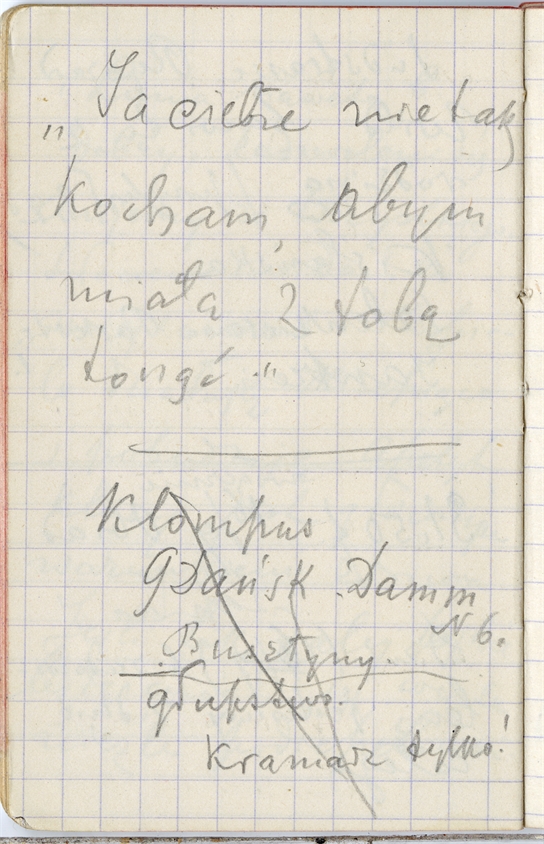 „Ja ciebie nie tak
kocham, abym
miała z tobą
tongć."
Klompus
Gdańsk. Damm
N 6.
Bursztyny.
głupstwo.
Kramarz tylko!